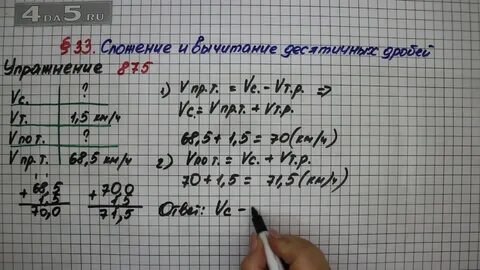 4DA5.RU
§33. Сложение и вычитание десятичных дробей
Упражнение 875
Vс. ?
Vт. 1,5 км/ч
Vпо т. ?
Vпр.т. 68,5 км/ч
1) Vпр.т. = Vс. - Vт.р. ⇒
Vс. = Vпр.т. + Vт.р.
68,5 + 1,5 = 70 (км/ч)
2) Vпо т. = Vс. + Vт.р.
70 + 1,5 = 71,5 (км/ч)
+ 68,5
1,5
70,0
+ 70,0
1,5
71,5
Ответ: Vс -